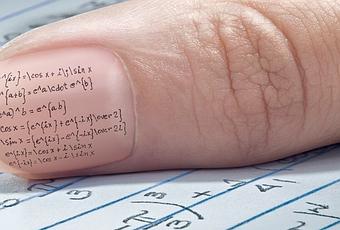 ^{ix}=\cos x + i\,\sin x
^{a+b} = e^a\cdot e^{b}
^a)^b = e^{ab}
\cos x = {e^{ix} + e^{-ix}\over 2}
\sin x = {e^{ix} - e^{-ix}\over 2i}
e^{ix} = \cos x + i \sin x
e^{-ix} = \cos x - i \sin x